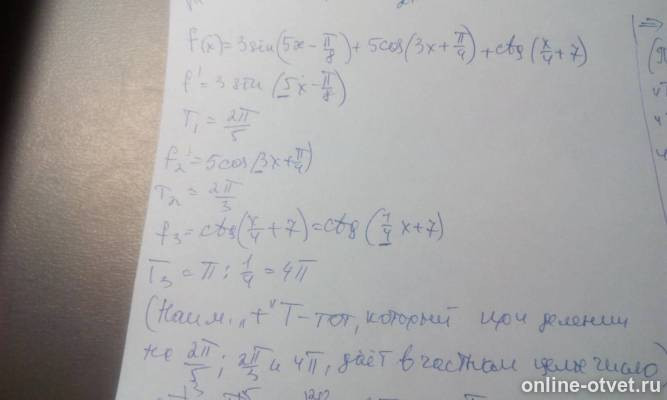 f(x)=3sin(5x-π/8)+5cos(3x+π/4)+ctg(x/4+7)
f'=3sin(5x-π/8)
T₁=2π/5
f₂'=5cos(3x+π/4)
T₂=2π/3
f₃=ctg(x/4+7)=ctg(1/4x+7)
T₃=π:1/4=4π
(Наим. "+" T-тот, который при делении
на 2π/5; 2π/3 и 4π, даёт в частном целое число)
online-otvet.ru